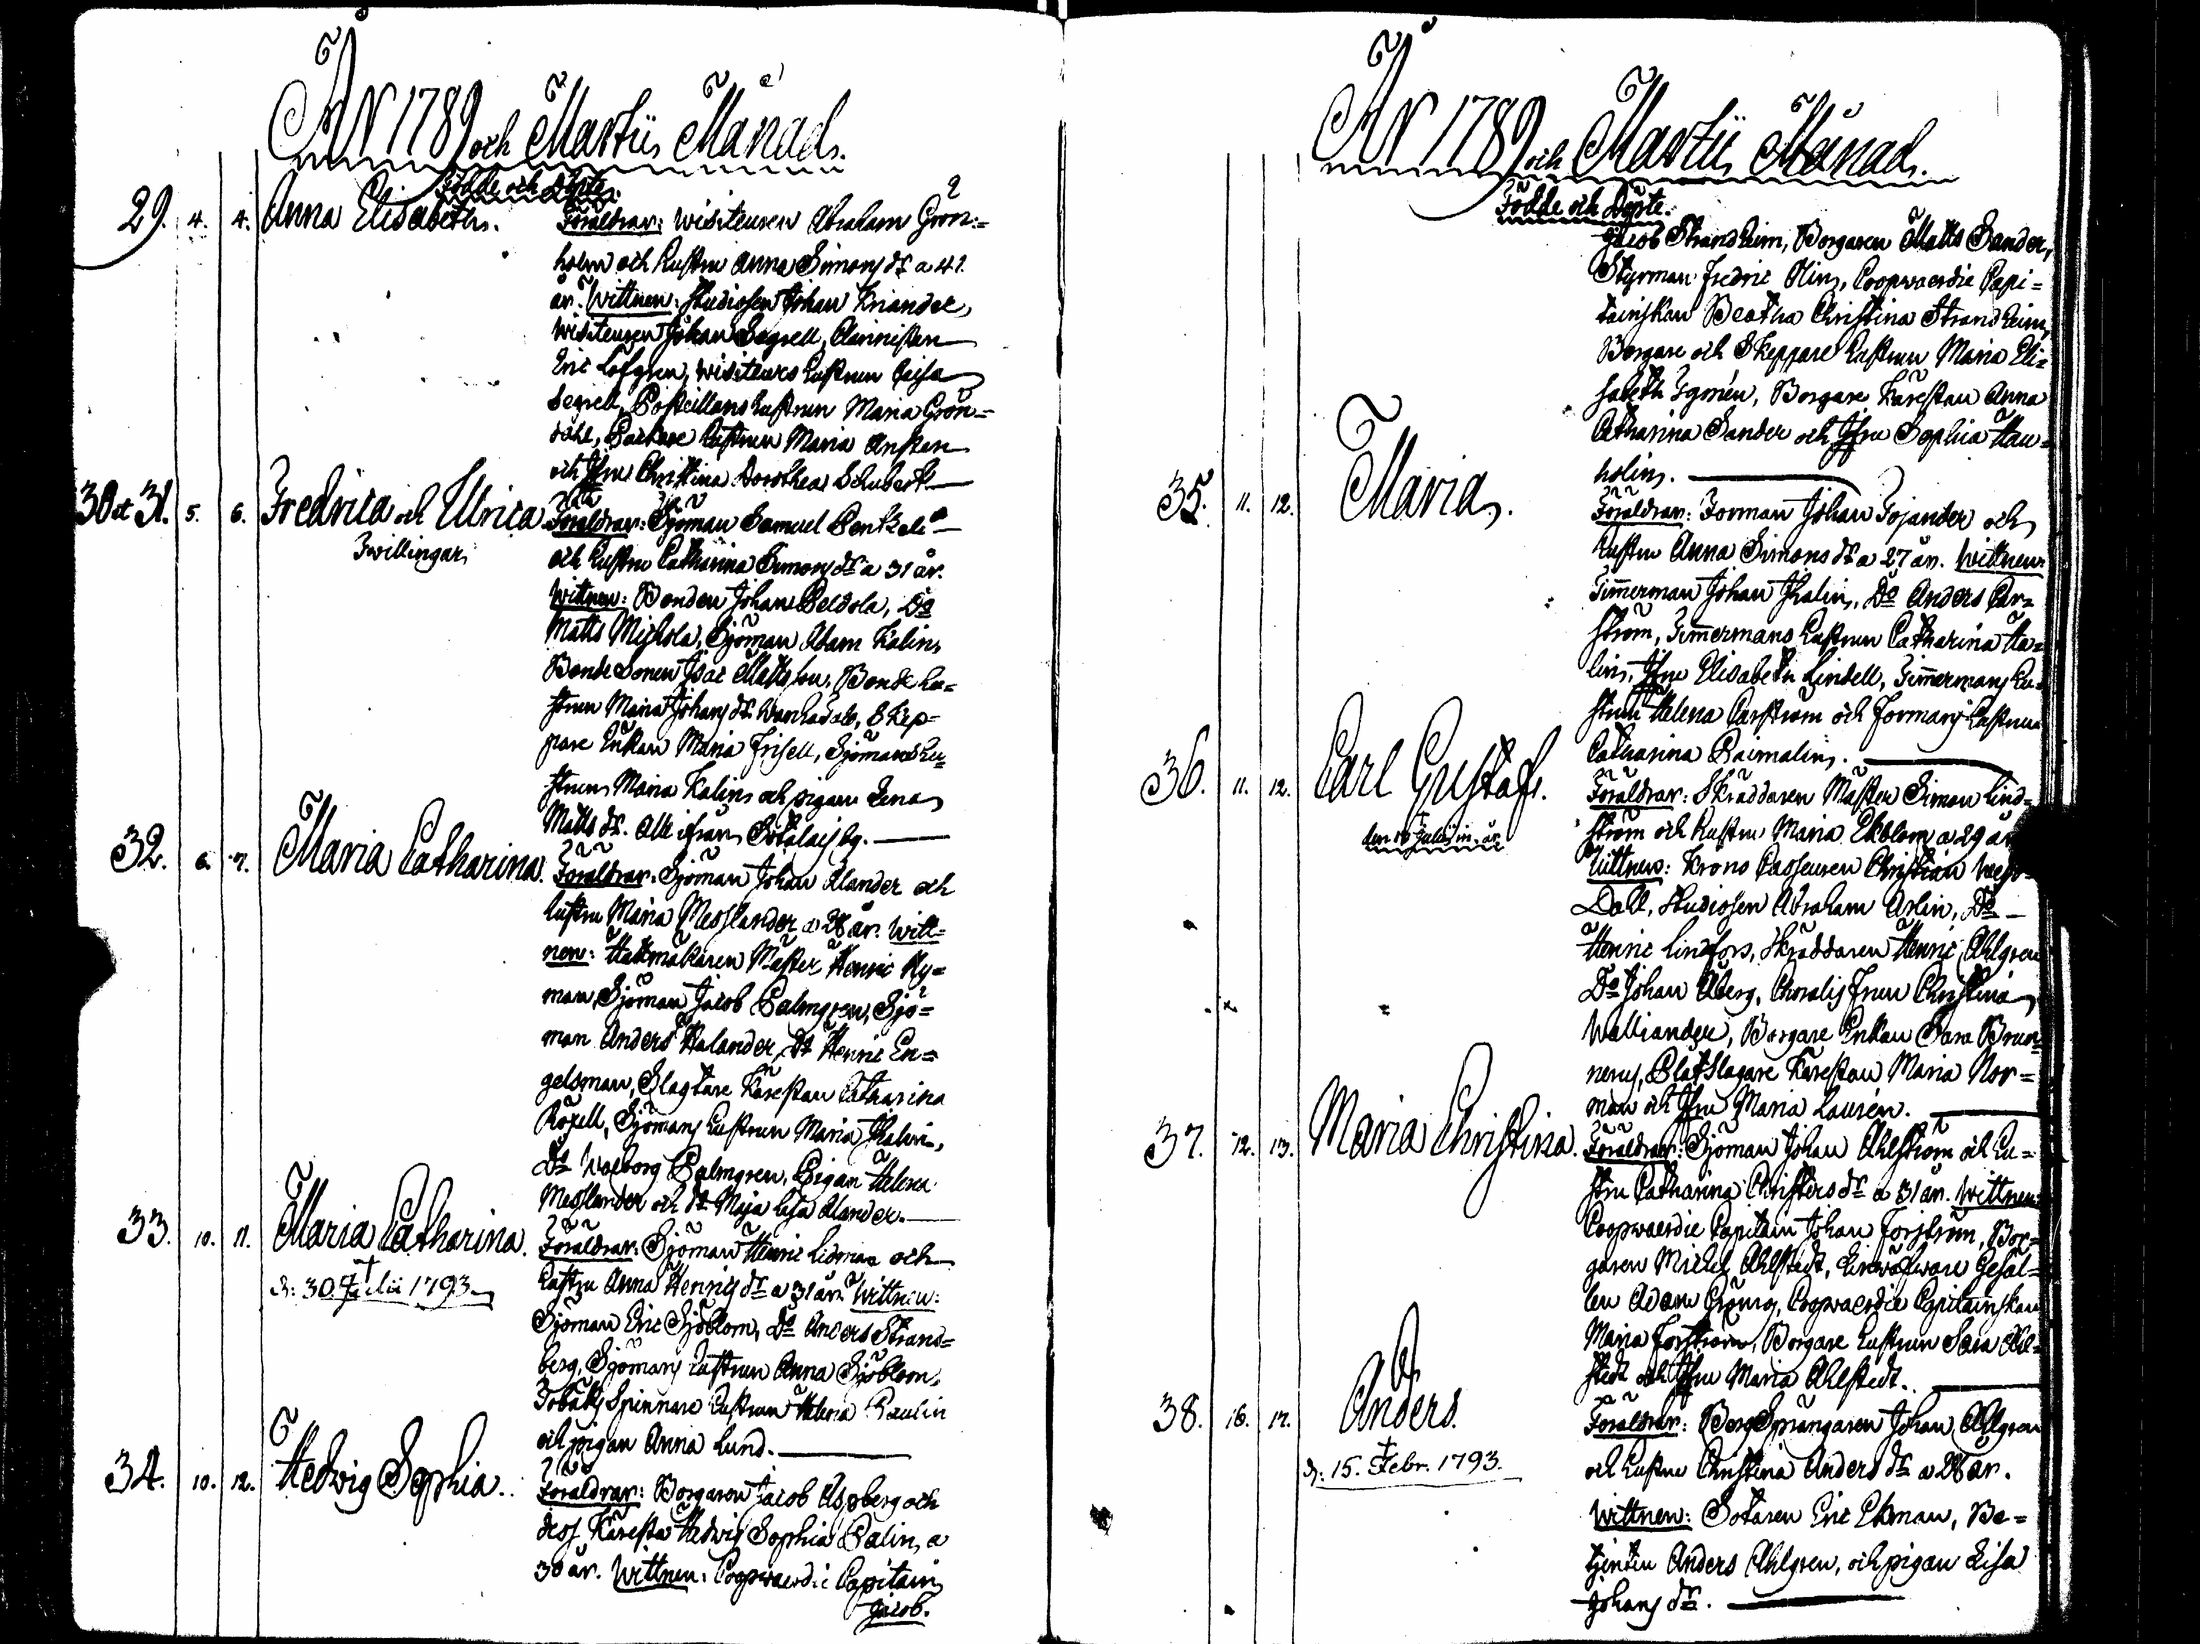 År 1789 och Martii Månad.
Födde och Döpte.
29. 4. 4. Anna Elisabeth. Föräldrar: Wisiteuren Abraham Grön-
holm och hustru Anna Simons dr a 41
år. Wittnen: Studiosen Johan Kriander,
Wisiteuren Johan Segrell,
Eric Löfgren, Wisiteurs hustrun Caisa
Segrell, Postillions hustrun Maria Grön-
dahl, hustrun Maria
och Jfru Christina Dorothea Schubert.
30 et 31. 5. 6. Fredrica och Ulrica Föräldrar: Sjöman Samuel
Twillingar. och hustru Catharina Simons dr a 31 år.
Wittnen: Bonden Johan Peldola, Do
Matts Mickola, Sjöman Adam Kalin,
Bonde Sonen Isac Mattsson, Bonde hu-
strun Maria Johans dr, Skep-
pare Enkan Maria Frisell, Sjömans hu-
strun Maria Kalin och pigan Lena
Matts dr. Alle ifrån
32. 6. 7. Maria Catharina. Föräldrar: Sjöman Johan Alander och
hustru Maria Messlander a 28 år. Witt-
nen: Hattmakaren Mäster Henric Ny-
man, Sjöman Jacob Palmgren, Sjö-
man Anders Kalander, Do Henric En-
gelsman, Slagtare Kärestan Catharina
Roxell, Sjömans hustrun Maria Thalin,
Do Walborg Palmgren, Pigan Helena
Messlander och Do Maja Lisa Alander.
33. 10. 11. Maria Catharina. Föräldrar: Sjöman Henric Lidman och
† d: 30 Julii 1793. hustru Anna Henrics dr a 31 år. Wittnen:
Sjöman Eric Sjöblom, Do Anders Strand-
berg, Sjömans hustrun Anna Sjöblom,
Tobaks Spinnare hustrun Helena Paulin
och pigan Anna Lund.
34. 10. 12. Hedvig Sophia. Föräldrar: Borgaren Jacob Aspberg och
dess Käresta Hedvig Sophia Palin, a
30 år. Wittnen: Coopvaerdie Capitain
Jacob.
År 1789 och Martii Månad.
Födde och Döpte.
Jacob Strandheim, Borgaren Matts Sander,
Styrman Fredric Olin, Coopvaerdie Capi-
tainskan Beatha Christina Strandheim,
Borgare och Skeppare hustrun Maria Eli-
sabeth, Borgare Kärestan Anna
Catharina Sander och Jfru Sophia Hau-
holm.
35. 11. 12. Maria. Föräldrar: Forman Johan Tojander och
hustru Anna Simons dr a 27 år. Wittnen:
Timmerman Johan Thalin, Do Anders Car-
ström, Timmermans hustrun Catharina Tha-
lin, Jfru Elisabeth Lindell, Timmermans hu-
strun Helena Carström och Formans hustrun
Catharina Raimalin.
36. 11. 12. Carl Gustaf. Föräldrar: Skräddaren Mäster Simon Lind-
† den 10 Julii in. år ström och hustru Maria Ekblom a 29 år
Wittnen: Krono Casseuren Christian
Dahl, Studiosen Abraham Aslin, Do
Henric Lindfors, Skräddaren Henric Ahlgren
Do Johan Åberg, Choralis Frun Christina
Walliander, Borgare Enkan Sara Brun-
nerus, Plåtslagare Kärestan Maria Nor-
man och Jfru Maria Laurén.
37. 12. 13. Maria Christina. Föräldrar: Sjöman Johan Ahlström och hu-
stru Catharina Christers dr a 31 år. Wittnen:
Coopvaerdie Capitain Johan Forström, Bor-
garen Michel Ahlstedt, Linwäfware Gesäl-
len Adam, Coopvaerdie Capitainskan
Maria Forström, Borgare hustrun Sara Ahl-
stedt och Jfru Maria Ahlstedt.
38. 16. 17. Anders. Föräldrar: BergSprängaren Johan Ahlgren
† d: 15. Febr. 1793. och hustru Christina Anders dr a 28 år.
Wittnen: Sotaren Eric Ekman, Be-
tjenten Anders Ahlgren, och pigan Lisa
Johans dr.